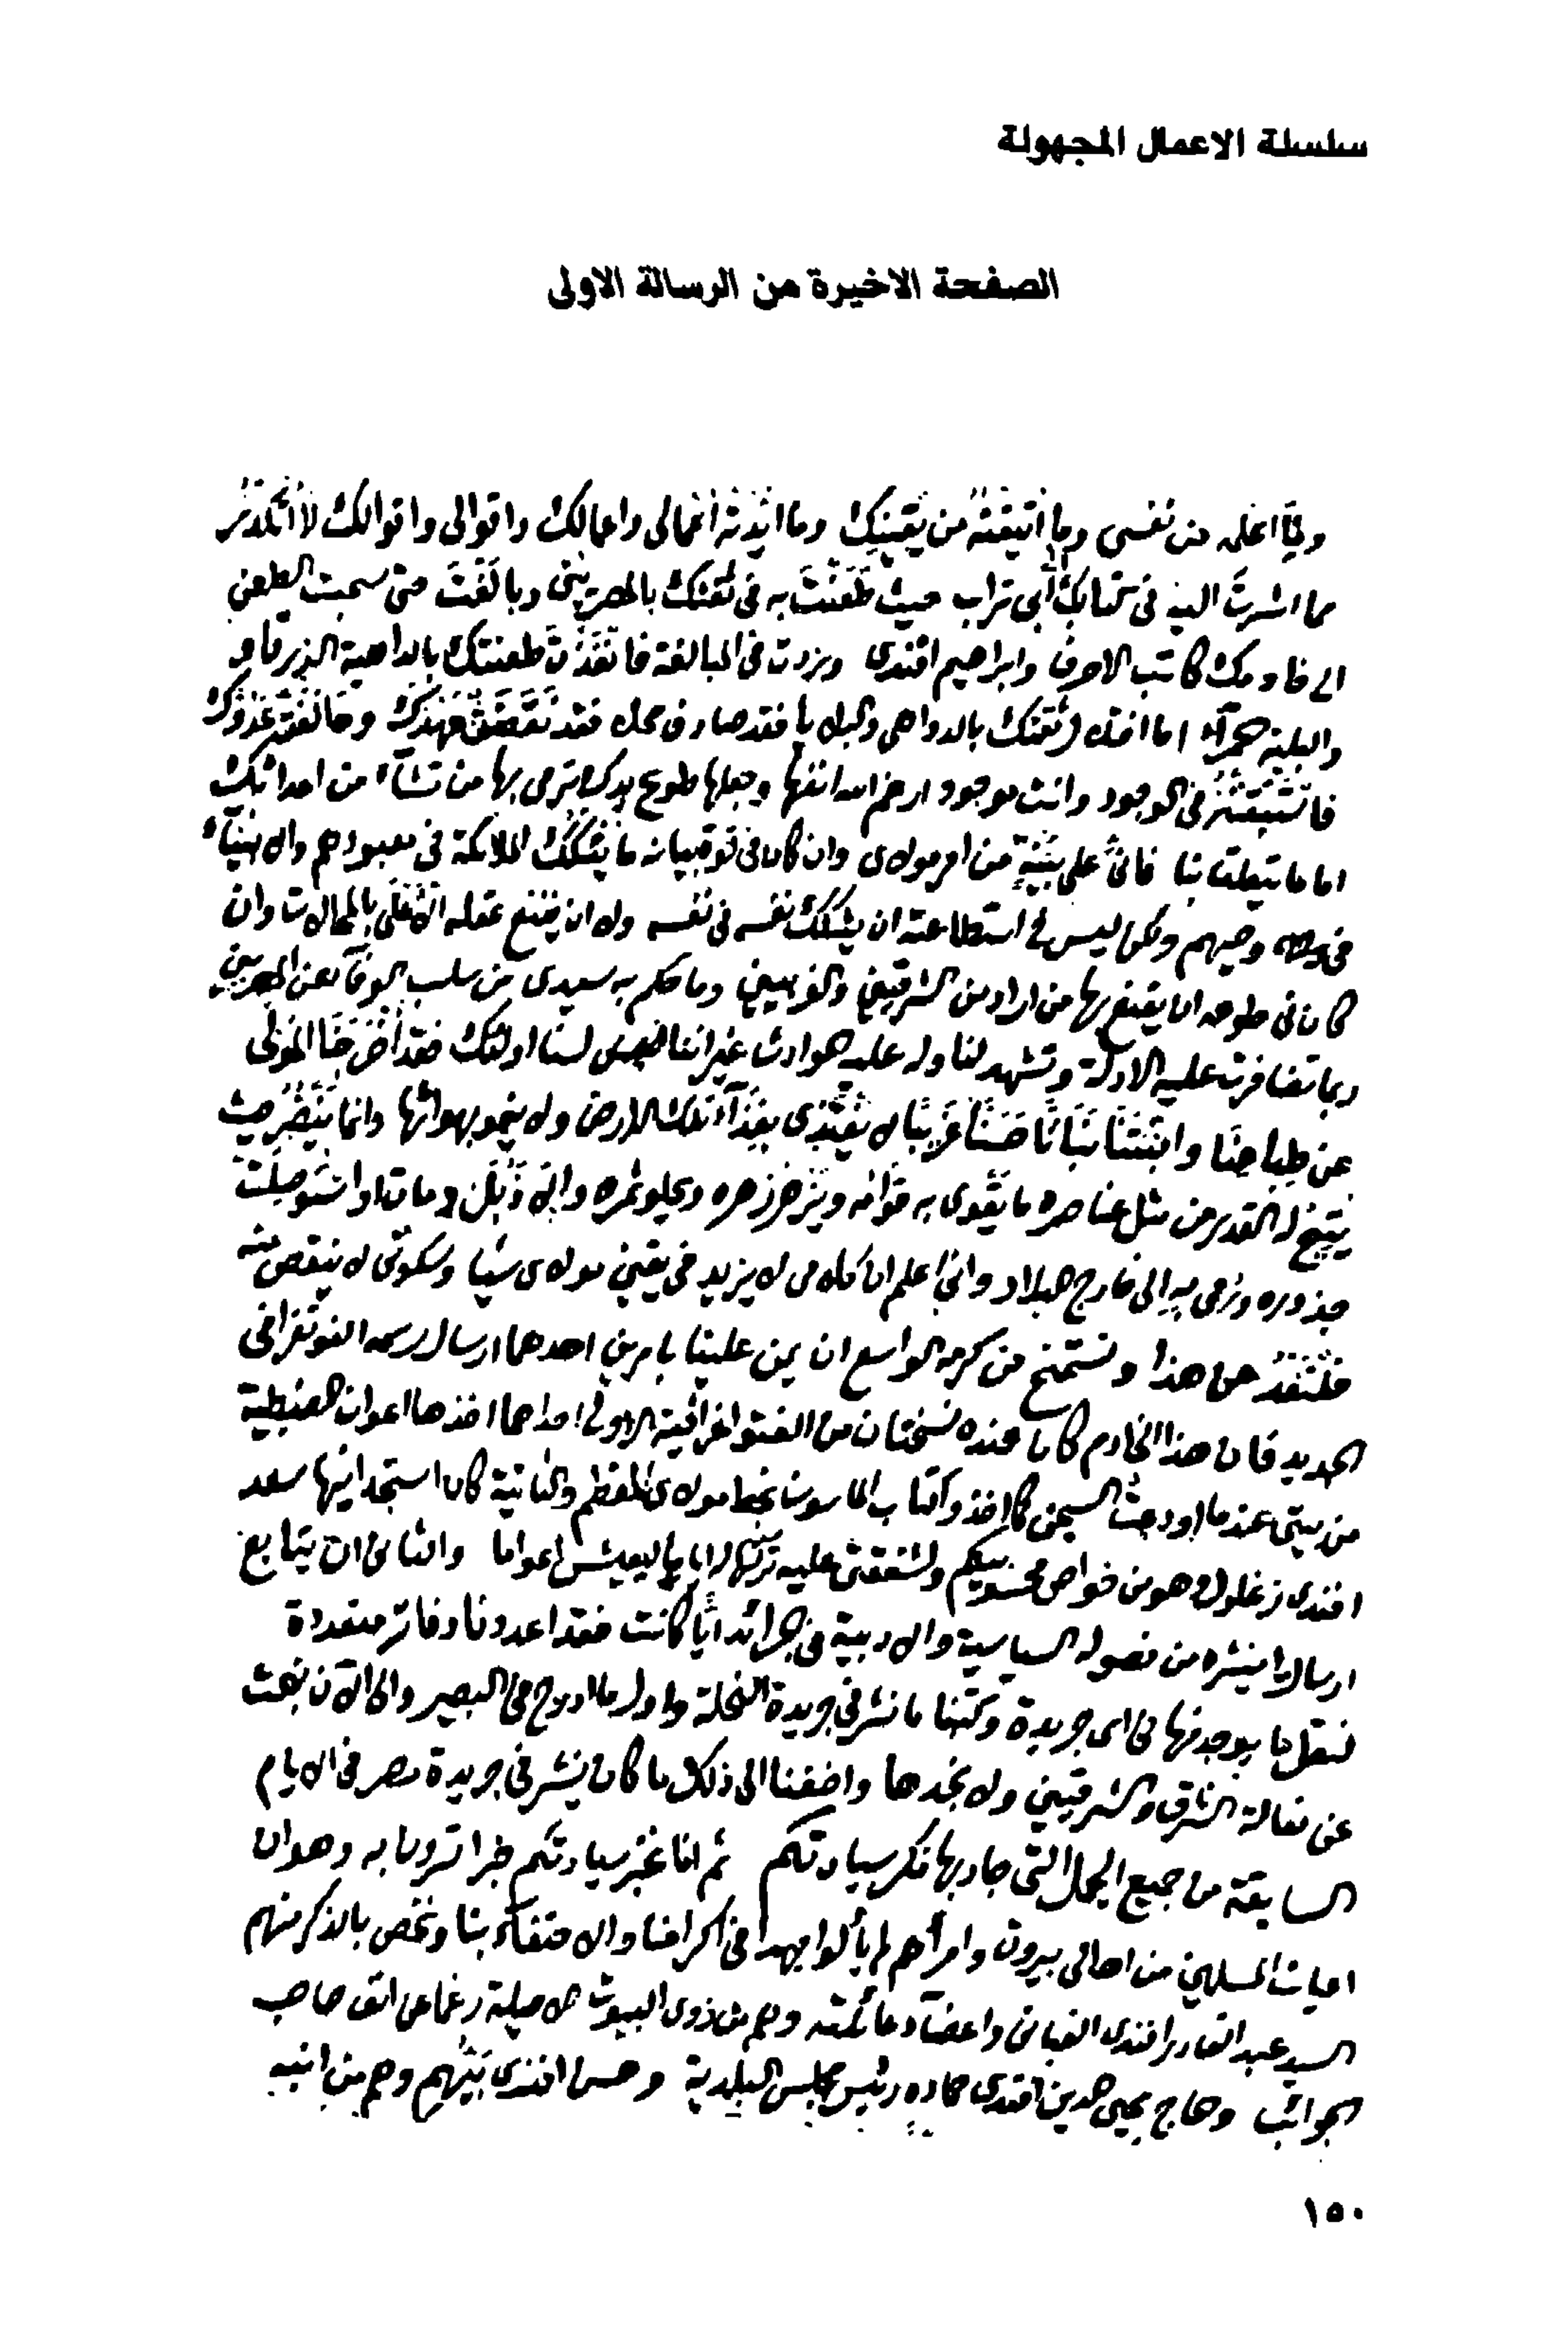 سلسلة الاعمال المجهولة
الصفحة الاخيرة من الرسالة الاولى
من نفسى وما من يقينك وما افعالى واعمالك واقوالى واقوالك لا
مما اشرت اليه فى كتابك لأبى تراب حيث طعنت به فى ثقتك بالمصريين وبالغت حتى سحبت الطعن
الى خادمك كاتب الاحرف وابراهيم افندى وزدت فى المبالغة طعنتك بالداهية الزرقاء
والبلية اما ثقتك بالدواهى والبلايا فقد صادف محله فقد
فى الوجود وانت موجود ارغم الله انفها وجعلها طوع يدك ترمى بها من تشاء من اعدائك
اما ما يتعلق بنا فانى على بينة من امر مولاى وان كان فى قوة بيانه ما يشكك الملائكة فى معبودهم والانبياء
فى وحيهم ولكن ليس فى استطاعته ان يشكك نفسه فى نفسه ولا ان يقنع عقله بالمحالات وان
كان فى طوعه ان يقنع بها من اراد من الشرقيين والغربيين وما حكم به سيدى من سلب الوفاء عن المصريين
ربما تضافرت عليه الادلة وتشهد لنا وله عليه حوادث غير اننا لسنا اولئك فقد
عن طباعنا وانبتنا نباتا حسنا غريبا لا يغتذى بغذاء تلك الارض ولا ينمو بهوائها وانما ينتظر حيث
يتيح له القدر من مثل عناصره ما يقوى به قوائمه ويزهر زهره ويحلو ثمره والا ذبل وما
جذوره ورمى به الى خارج البلاد وانى اعلم ان كلامى لا يزيد فى يقين مولاى شيئا وسكوتى لا ينقص منه
عن هذا ونستمنح من كرمه الواسع ان يمن علينا بامرين احدهما ارسال رسمه الفوتغرافى
الجديد فان هذا الخادم كان عنده نسختان من الفتوغرافية الاولى احداهما اخذها اعوان الضبطية
من بيتى عندما اودعت السجن كما اخذوا كتاب الماسون بخط مولاى المعظم والثانية كان استجدانيها سعد
افندى زغلول وهو من خواص محسوبيكم ولشفقتى عليه تركتها له ليعيش اعواما والثانى ان يتابع
ارسال ما ينشره من فصوله السياسية والادبية فى الجرائد ايا كانت فقد اعددنا دفاتر متعددة
لنقل ما يوجد منها فى اى جريدة وكتبنا ما نشر فى جريدة النحلة واول ما ادرج فى البصير والى الآن نبحث
عن مقالة الشرق والشرقيين ولا نجدها واضفنا الى ذلك ما كان ينشر فى جريدة مصر فى الايام
السابقة من جميع الجمل التى جاد بها فكر سيادتكم ثم انا نخبر سيادتكم خبرا تسرون به وهو ان
اعيان المسلمين من اهالى بيروت وامراءهم لم يألوا جهدا فى اكرامنا والاحتفاء بنا ونخص بالذكر منهم
السيد عبد القادر افندى القبانى واعضاء عائلته وهم من ذوى البيوت الاصيلة رغما عن انف صاحب
الجوائب وحاج محيى الدين افندى حماده رئيس مجلس البلدية وحسن افندى بيهم وهم من انبه
١٥٠